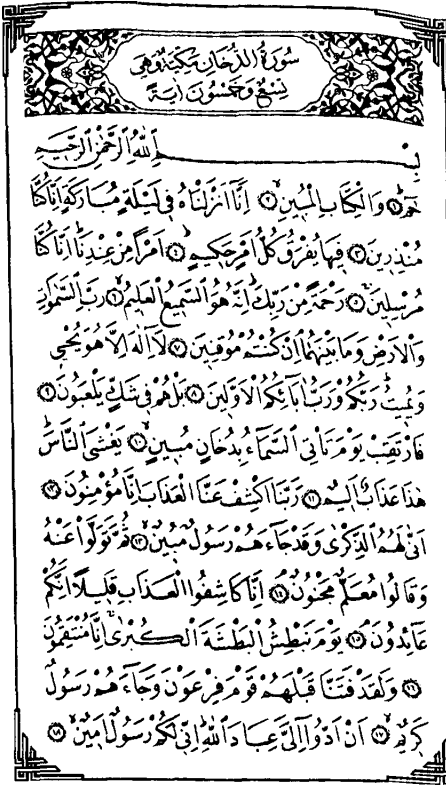 سُورَةُ الدُّخَانِ مَكِّيَّةٌ وَهِيَ
تِسْعٌ وَخَمْسُونَ آيَةً
بِسْمِ اللّٰهِ الرَّحْمٰنِ الرَّحِيمِ
حٰمٓ ﴿١﴾ وَالْكِتَابِ الْمُبِينِۙ ﴿٢﴾ اِنَّٓا اَنْزَلْنَاهُ فِي لَيْلَةٍ مُبَارَكَةٍ اِنَّا كُنَّا
مُنْذِرِينَ ﴿٣﴾ فِيهَا يُفْرَقُ كُلُّ اَمْرٍ حَكِيمٍۙ ﴿٤﴾ اَمْرًا مِنْ عِنْدِنَاۜ اِنَّا كُنَّا
مُرْسِلِينَۚ ﴿٥﴾ رَحْمَةً مِنْ رَبِّكَۜ اِنَّهُ هُوَ السَّمِيعُ الْعَلِيمُۙ ﴿٦﴾ رَبِّ السَّمٰوَاتِ
وَالْاَرْضِ وَمَا بَيْنَهُمَاۢ اِنْ كُنْتُمْ مُوقِنِينَ ﴿٧﴾ لَٓا اِلٰهَ اِلَّا هُوَ يُحْيِي
وَيُمِيتُۜ رَبُّكُمْ وَرَبُّ اٰبَٓائِكُمُ الْاَوَّلِينَ ﴿٨﴾ بَلْ هُمْ فِي شَكٍّ يَلْعَبُونَ ﴿٩﴾
فَارْتَقِبْ يَوْمَ تَأْتِي السَّمَٓاءُ بِدُخَانٍ مُبِينٍۙ ﴿١٠﴾ يَغْشَى النَّاسَۜ
هٰذَا عَذَابٌ اَلِيمٌ ﴿١١﴾ رَبَّنَا اكْشِفْ عَنَّا الْعَذَابَ اِنَّا مُؤْمِنُونَ ﴿١٢﴾
اَنّٰى لَهُمُ الذِّكْرٰى وَقَدْ جَٓاءَهُمْ رَسُولٌ مُبِينٌۙ ﴿١٣﴾ ثُمَّ تَوَلَّوْا عَنْهُ
وَقَالُوا مُعَلَّمٌ مَجْنُونٌۢ ﴿١٤﴾ اِنَّا كَاشِفُوا الْعَذَابِ قَلِيلًا اِنَّكُمْ
عَٓائِدُونَۢ ﴿١٥﴾ يَوْمَ نَبْطِشُ الْبَطْشَةَ الْكُبْرٰىۚ اِنَّا مُنْتَقِمُونَ
﴿١٦﴾ وَلَقَدْ فَتَنَّا قَبْلَهُمْ قَوْمَ فِرْعَوْنَ وَجَٓاءَهُمْ رَسُولٌ
كَرِيمٌۙ ﴿١٧﴾ اَنْ اَدُّٓوا اِلَيَّ عِبَادَ اللّٰهِۜ اِنِّي لَكُمْ رَسُولٌ اَمِينٌۙ ﴿١٨﴾